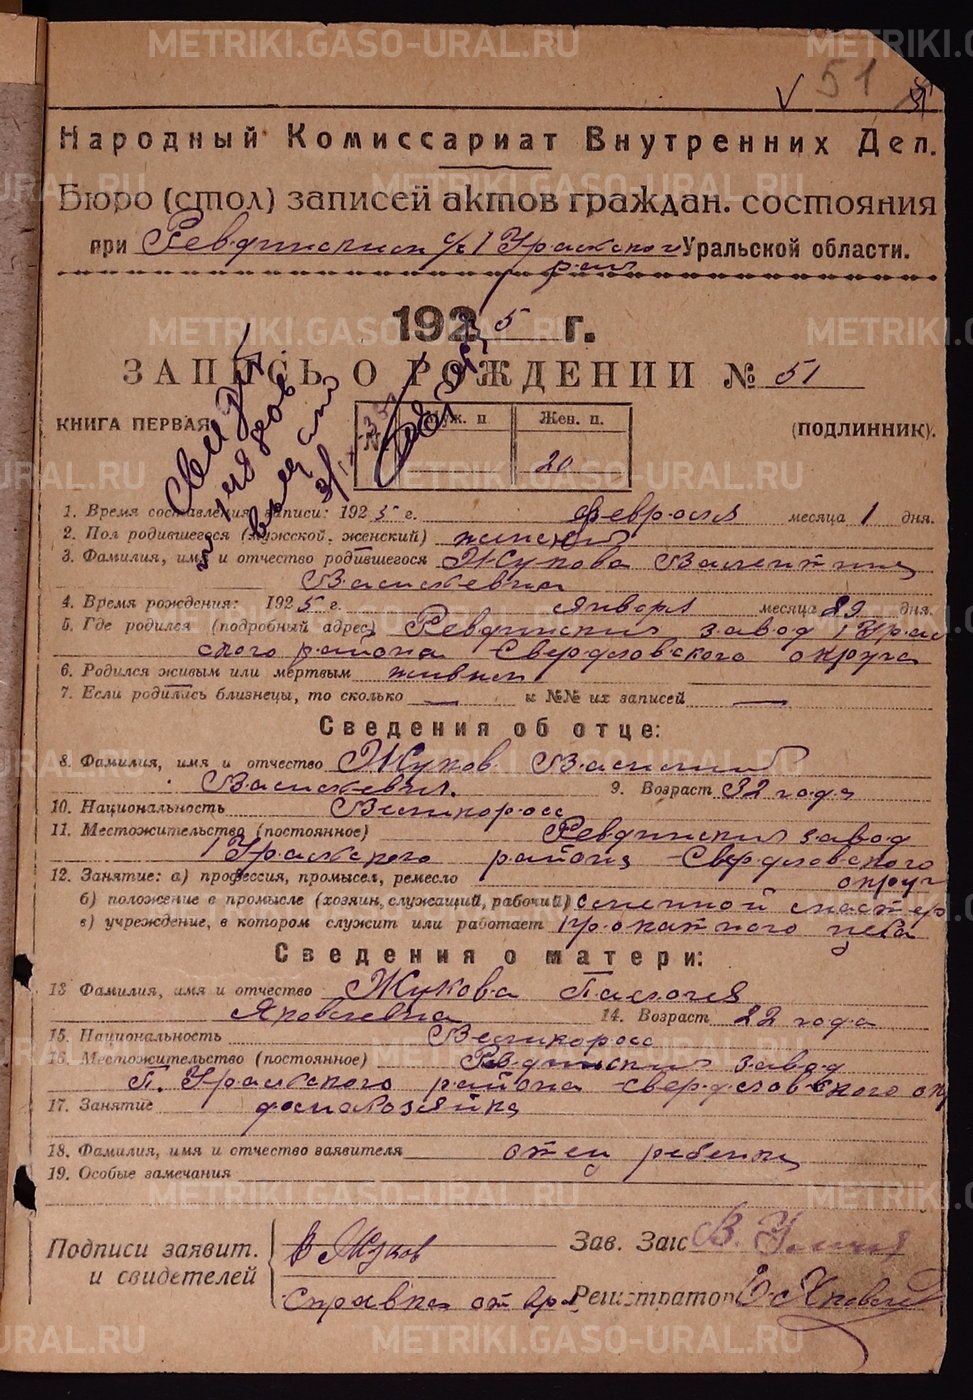 METRIKI.GASO-URAL.RU
51
Народный Комиссариат Внутренних Дел.
Бюро (стол) записей актов граждан. состояния
при Ревдинском с/с Уральской области.
1925 г.
ЗАПИСЬ О РОЖДЕНИИ № 51
КНИГА ПЕРВАЯ Муж. п. Жен. п. (ПОДЛИННИК).
№ 20
1. Время составления записи: 1925 г. февраля месяца 1 дня.
2. Пол родившегося (мужской, женский) женский
3. Фамилия, имя и отчество родившегося Жукова Валентина
Васильевна
4. Время рождения: 1925 г. января месяца 29 дня.
5. Где родился (подробный адрес) Ревдинский завод
района Свердловского округа
6. Родился живым или мертвым живым
7. Если родились близнецы, то сколько — и №№ их записей —
Сведения об отце:
8. Фамилия, имя и отчество Жуков Василий
Васильевич. 9. Возраст 32 года
10. Национальность Великоросс
11. Местожительство (постоянное) Ревдинский завод
района Свердловского
округа
12. Занятие: а) профессия, промысел, ремесло
б) положение в промысле (хозяин, служащий, рабочий) сменный мастер
в) учреждение, в котором служит или работает прокатного цеха
Сведения о матери:
13 Фамилия, имя и отчество Жукова
Яковлевна 14. Возраст 22 года
15. Национальность Великоросс
16. Местожительство (постоянное) Ревдинский завод
П. Уральского района Свердловского окр
17. Занятие домохозяйка
18. Фамилия, имя и отчество заявителя отец ребенка
19. Особые замечания
Подписи заявит. В Жуков Зав. Загс В.
и свидетелей Справка от Регистратор